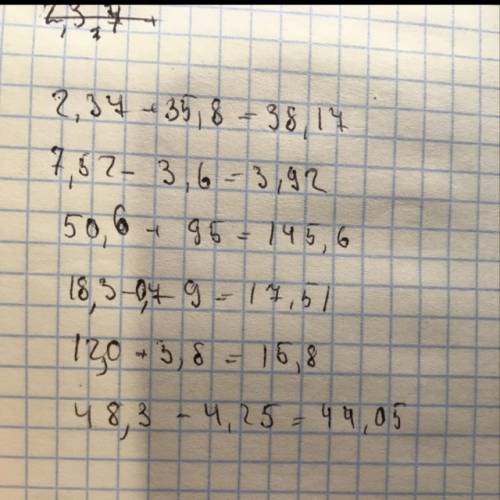 2,37 + 35,8 = 38,17
7,52 - 3,6 = 3,92
50,6 + 95 = 145,6
18,3 - 0,79 = 17,51
12,0 + 3,8 = 15,8
48,3 - 4,25 = 44,05